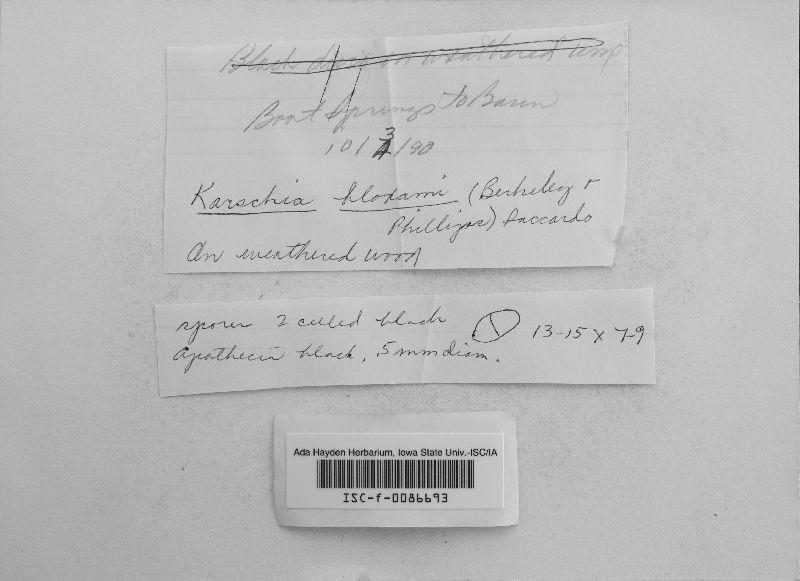 Black discs on weathered
Boat Springs to Basin
10/3/90
Karschia bloxami (Berkeley &
Phillips) Saccardo
On weathered wood
spores 2 celled black 13-15 x 7-9
apothecia black, 5mm diam.
Ada Hayden Herbarium, Iowa State Univ.-ISC/IA
ISC-f-0086693